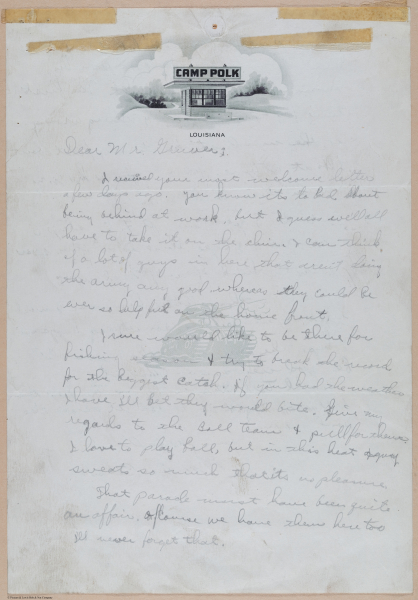 CAMP POLK
LOUISIANA
Dear Mr. Greever;
I received your most welcome letter
a few days ago. you know its to bad about
being behind at work, but I guess we'll all
have to take it on the chin. I can think
of a lot of guys in here that aren't doing
the army any good whereas they could be
ever so helpful on the home front.
I sure would like to be there for
fishing season & try to break the record
for the biggest catch. If you had the weather
I have I'll bet they would bite. Give my
regards to the ball team & pull for them
I love to play ball, but in this heat a guy
sweats so much that its no pleasure.
That parade must have been quite
an affair, of course we have them here too
I'll never forget that.